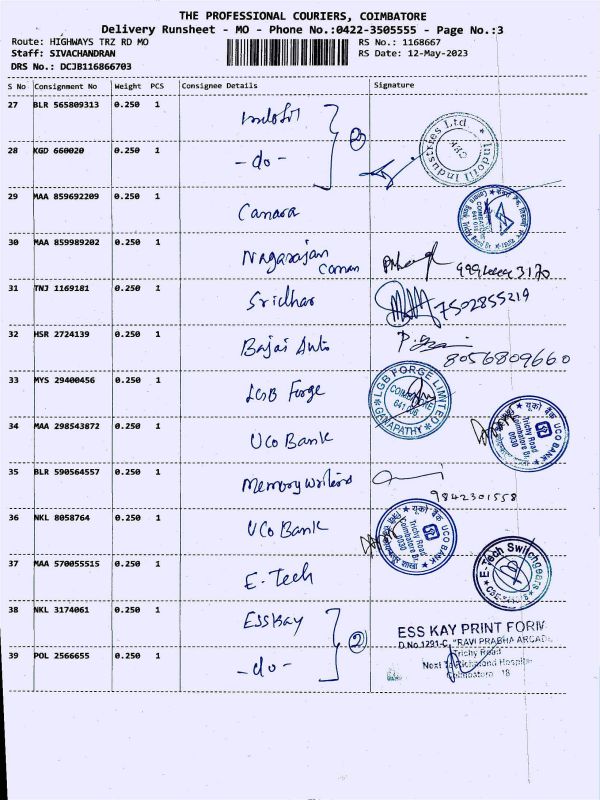 THE PROFESSIONAL COURIERS, COIMBATORE
Delivery Runsheet - MO - Phone No.:0422-3505555 - Page No.:3
Route: HIGHWAYS TRZ RD MO
RS No.: 1168667
Staff: SIVACHANDRAN
RS Date: 12-May-2023
DRS No.: DCJB116866703
S No Consignment No Weight PCS Consignee Details Signature
27 BLR 565809313 0.250 1 Indofil
28 KGD 660020 0.250 1 -do- ②
Indofil Industries Ltd
29 MAA 859692209 0.250 1 Canara
30 MAA 859989202 0.250 1 Nagarajan
31 TNJ 1169181 0.250 1 Sridhar 7502855219
32 HSR 2724139 0.250 1 Bajai Auto 8056809660
33 MYS 29400456 0.250 1 LGB Forge
LGB FORGE LIMITED
COIMBATORE
GANAPATHY
34 MAA 298543872 0.250 1 UCO Bank
यूको बैंक UCO BANK
Trichy Road
Coimbatore Br.
0030
35 BLR 590564557 0.250 1 Memory writers 9842301558
36 NKL 8058764 0.250 1 UCO Bank
यूको बैंक UCO BANK
Trichy Road
Coimbatore Br.
0030
37 MAA 570055515 0.250 1 E-Tech
E-Tech Switchgears
38 NKL 3174061 0.250 1 ESSKay
39 POL 2566655 0.250 1 -do- ②
ESS KAY PRINT FORM
D.No.1291-C, "RAVI PRABHA ARCADE
Trichy Road
Next To Richmond Hospital
Coimbatore 18